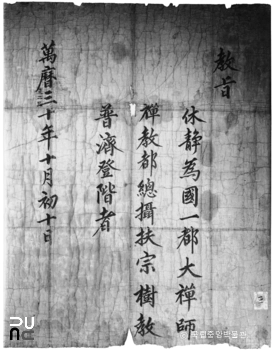 教旨
休静為國一都大禪師
禪教都總攝扶宗樹教
普濟登階者
萬曆三十年十月初十日
국립중앙박물관